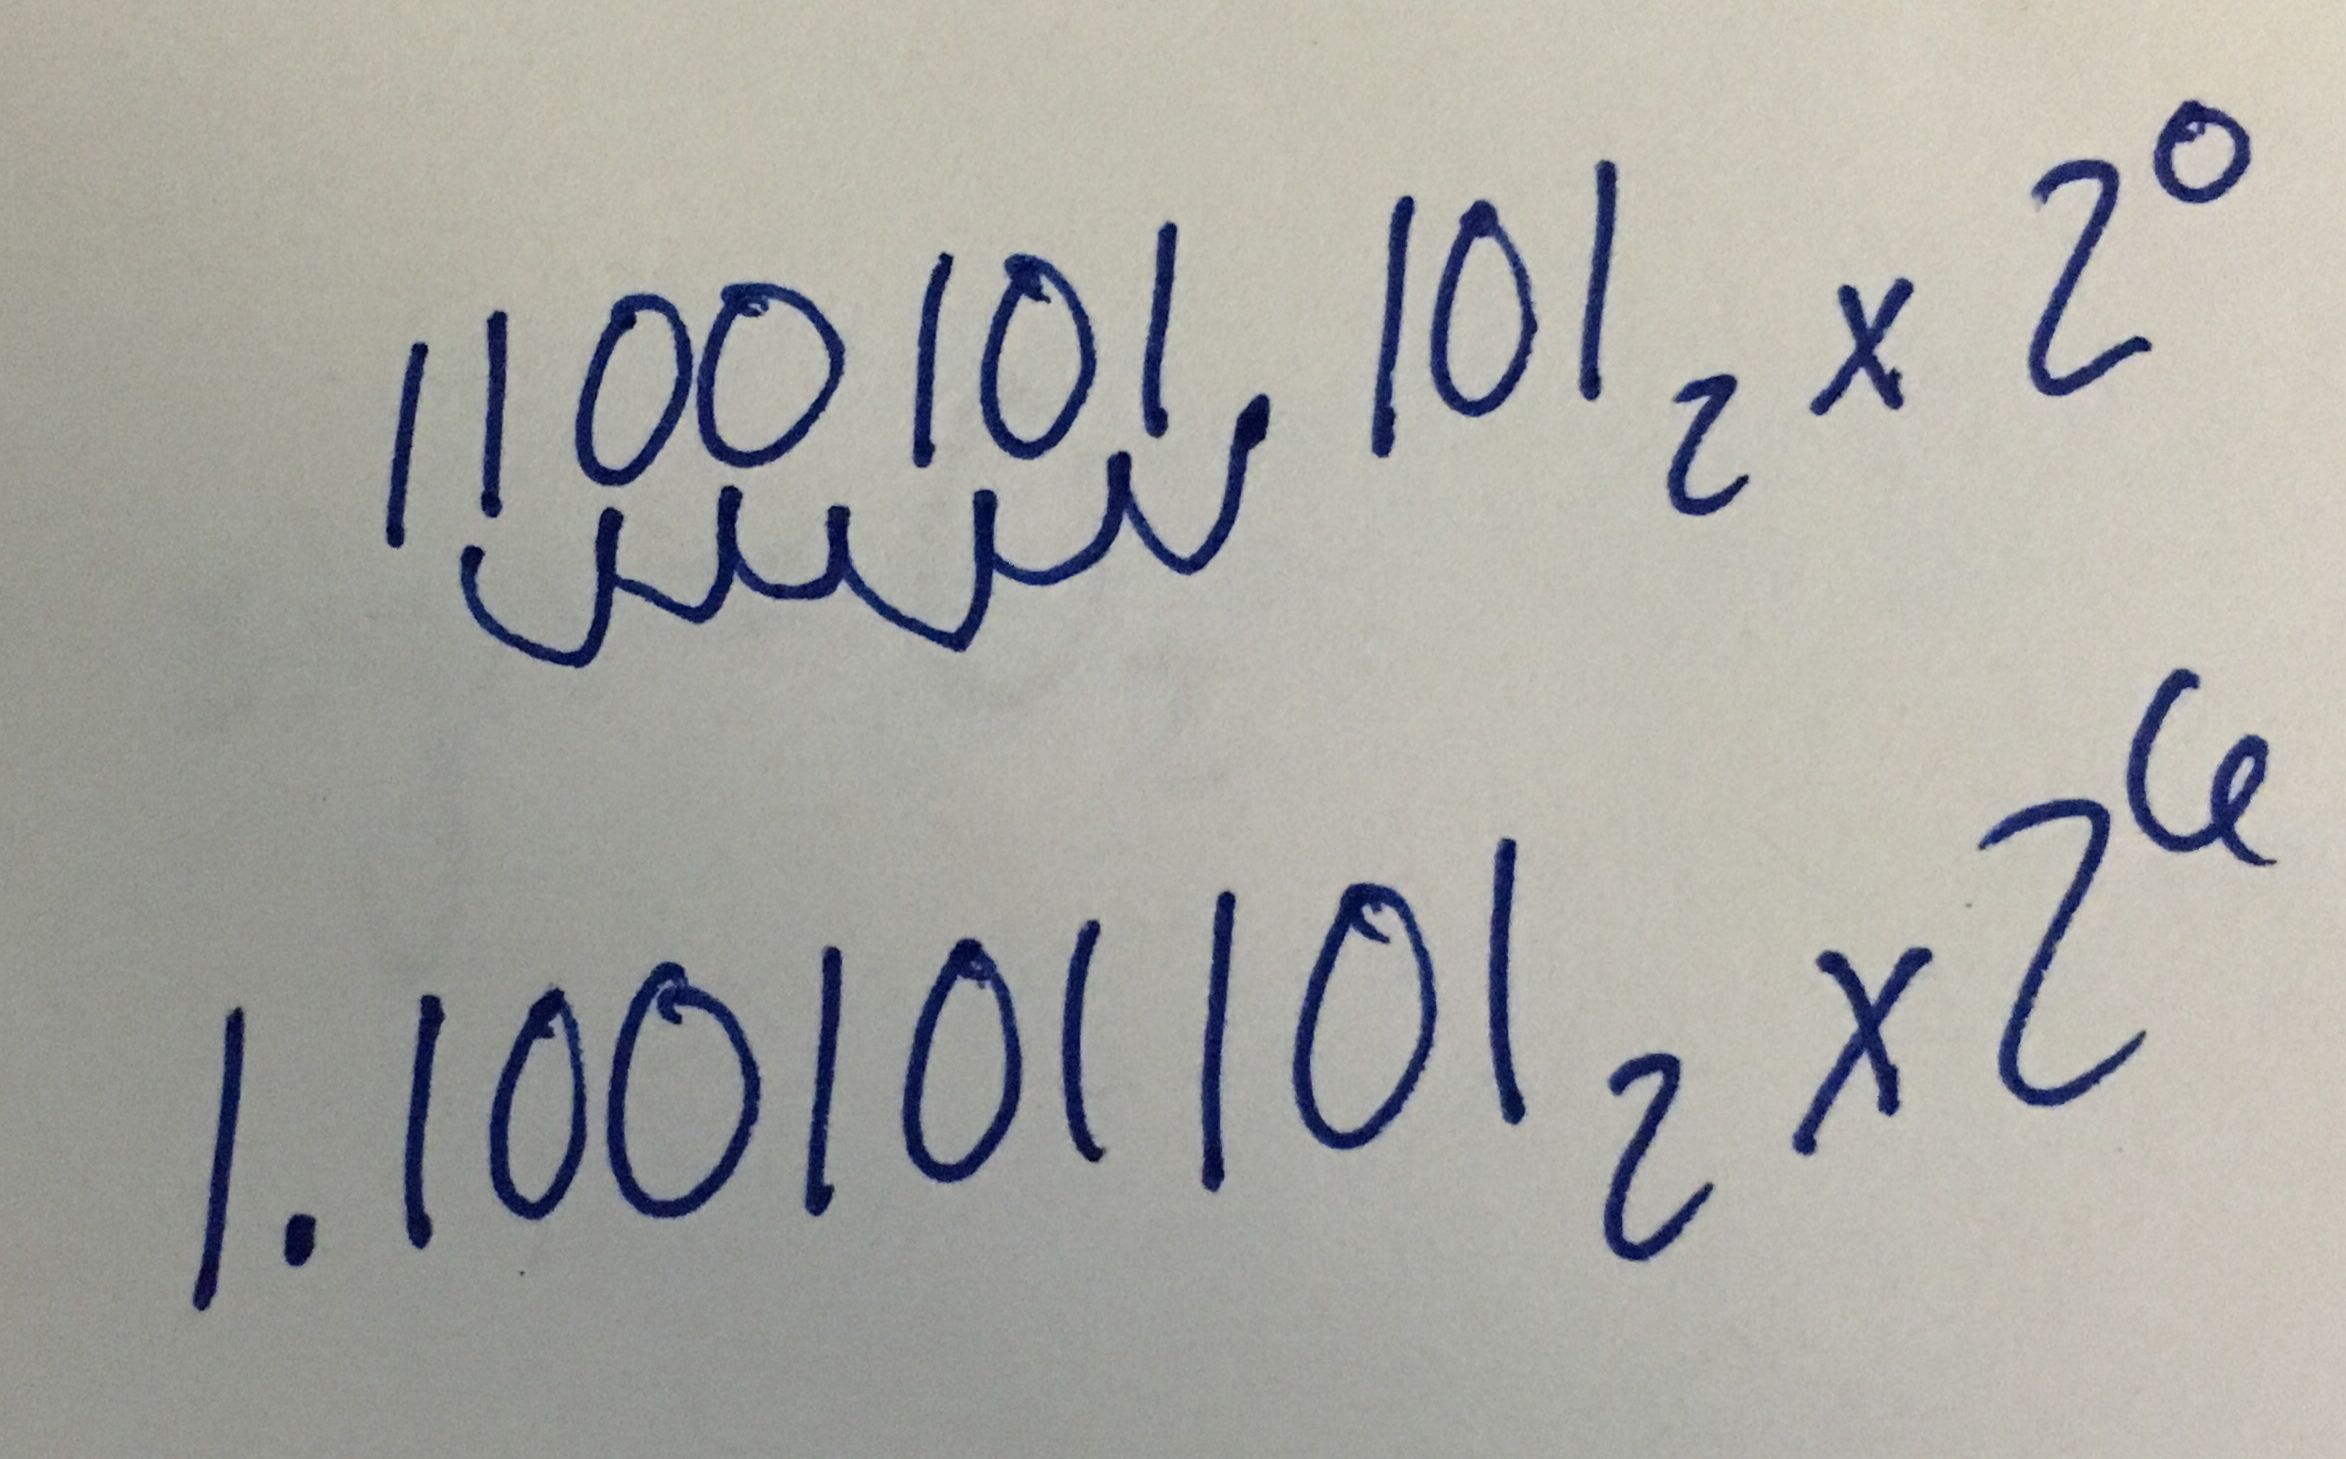 1100101.101₂ x 2⁰
1.100101101₂ x 2⁶